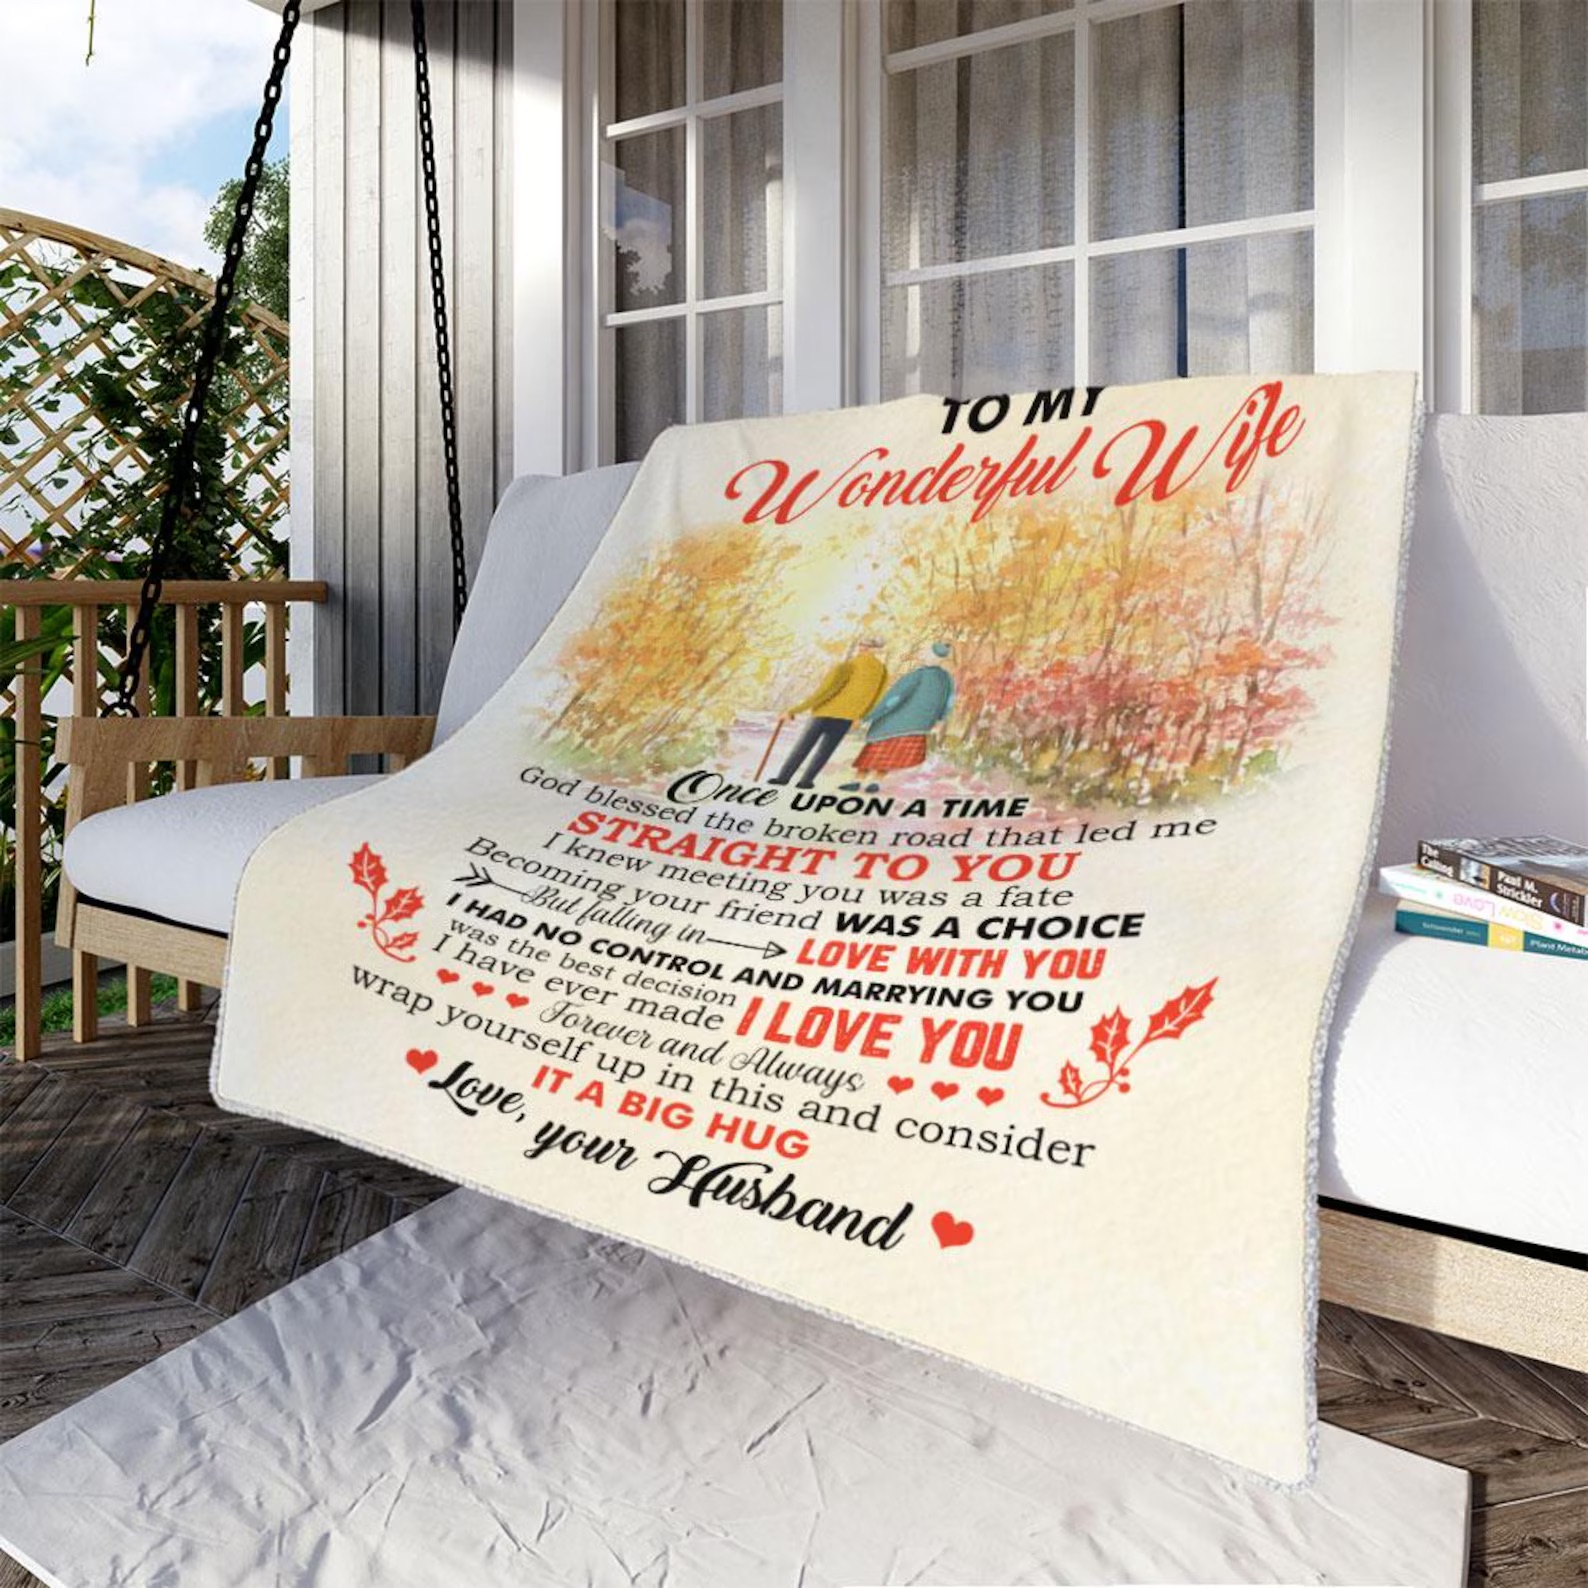 TO MY
Wonderful Wife
Once UPON A TIME
God blessed the broken road that led me
STRAIGHT TO YOU
I knew meeting you was a fate
Becoming your friend WAS A CHOICE
But falling in LOVE WITH YOU
I HAD NO CONTROL AND MARRYING YOU
was the best decision
I have ever made I LOVE YOU
Forever and Always
wrap yourself up in this and consider
IT A BIG HUG
Love, your Husband
The
Calling
Paul M.
Strickler
Slow Love
Plant Metals